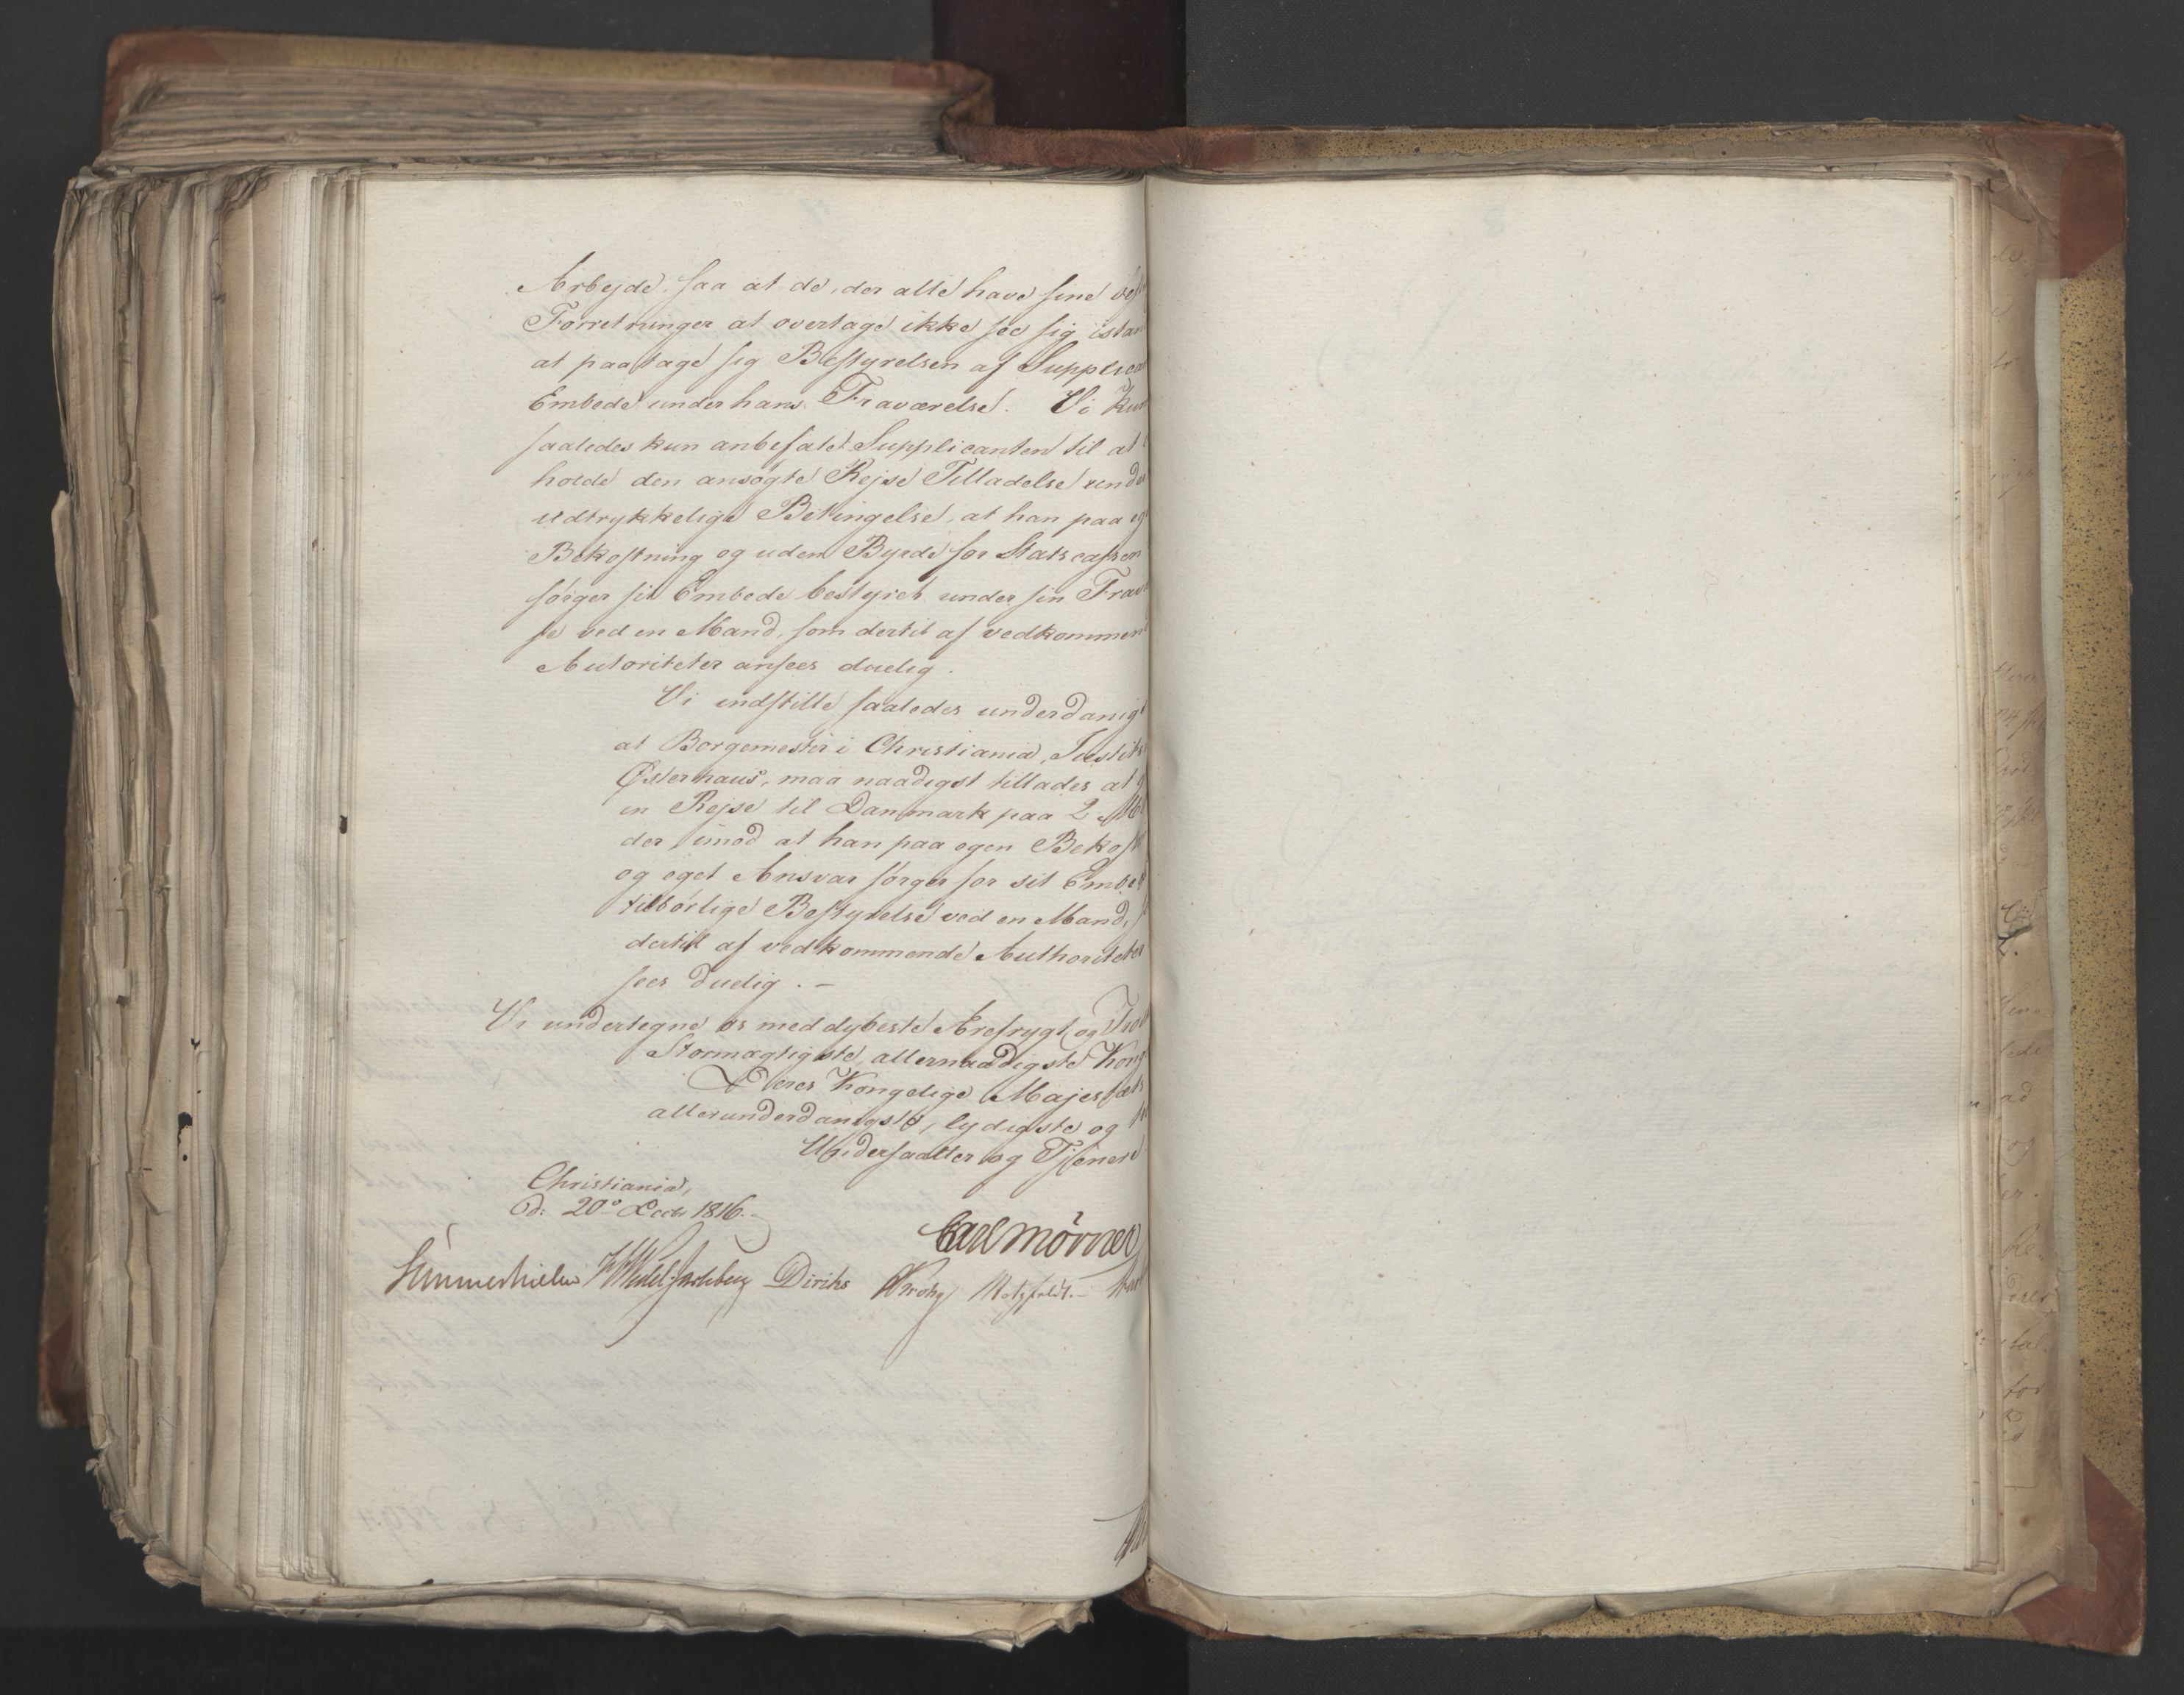 Arbejde, saa at de, der alle have sine
Forretninger at overtage ikke see sig istan
at paatage sig Bestyrelsen af Supplica
Embede under hans Fraværelse. Vi kun
saaledes kun anbefale Supplicanten til at
holde den ansøgte Rejse Tilladelse under
udtrykkelige Betingelse, at han paa eg
Bekostning og uden Byrde for Statscassen
sørger sit Embede bestyret under sin Frav
se ved en Mand, som dertil af vedkommen
Autoriteter ansees duelig.
Vi indstille saaledes underdanigt
at Borgemester i Christiania, Justits
Østerhaus, maa naadigst tillades at
en Rejse til Danmark paa 2 Må
der imod at han paa egen Bekost
og eget Ansvar sørger for sit Embed
tilbørlige Bestyrelse ved en Mand,
dertil af vedkommende Authoriteter
sees duelig. -
Vi undertegne os med dybeste Ærefrygt og Tro
Stormægtigste, allernaadigste Kong
Deres Kongelige Majestæts
allerunderdanigste, lydigste og
Undersaatter og Tjenere
Christiania,
d: 20° Decbr 1816.
Carl Mörner
Sommerhielm HWedel Jarlsberg Diriks Krohg Motzfeldt.